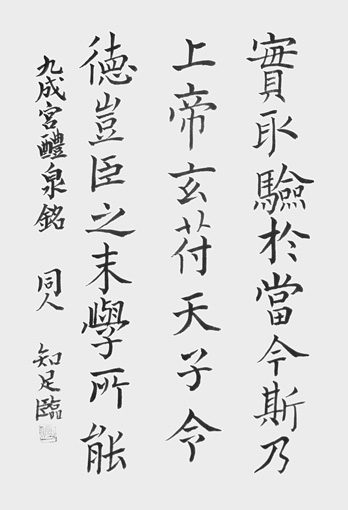 實取驗於當今斯乃
上帝玄苻天子令
德豈臣之末學所能
九成宮醴泉銘 同人 知足臨